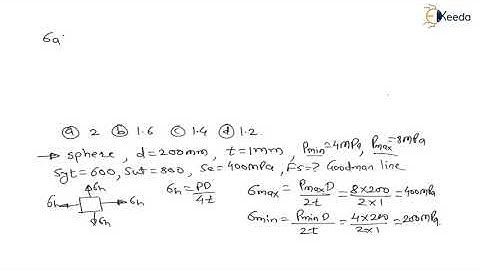 Ekeeda
6a:
ⓐ 2 ⓑ 1.6 ⓒ 1.4 ⓓ 1.2.
→ sphere, d=200mm, t=1mm, Pmin=4MPa, Pmax=8mpa
Syt=600, Sut=800, Se=400mpa, Fs=? Goodman line
σh σh σh σh
σh = PD/4t
σmax = PmaxD/2t = 8×200/2×1 = 400mpa
σmin = PminD/2t = 4×200/2×1 = 200mpa.